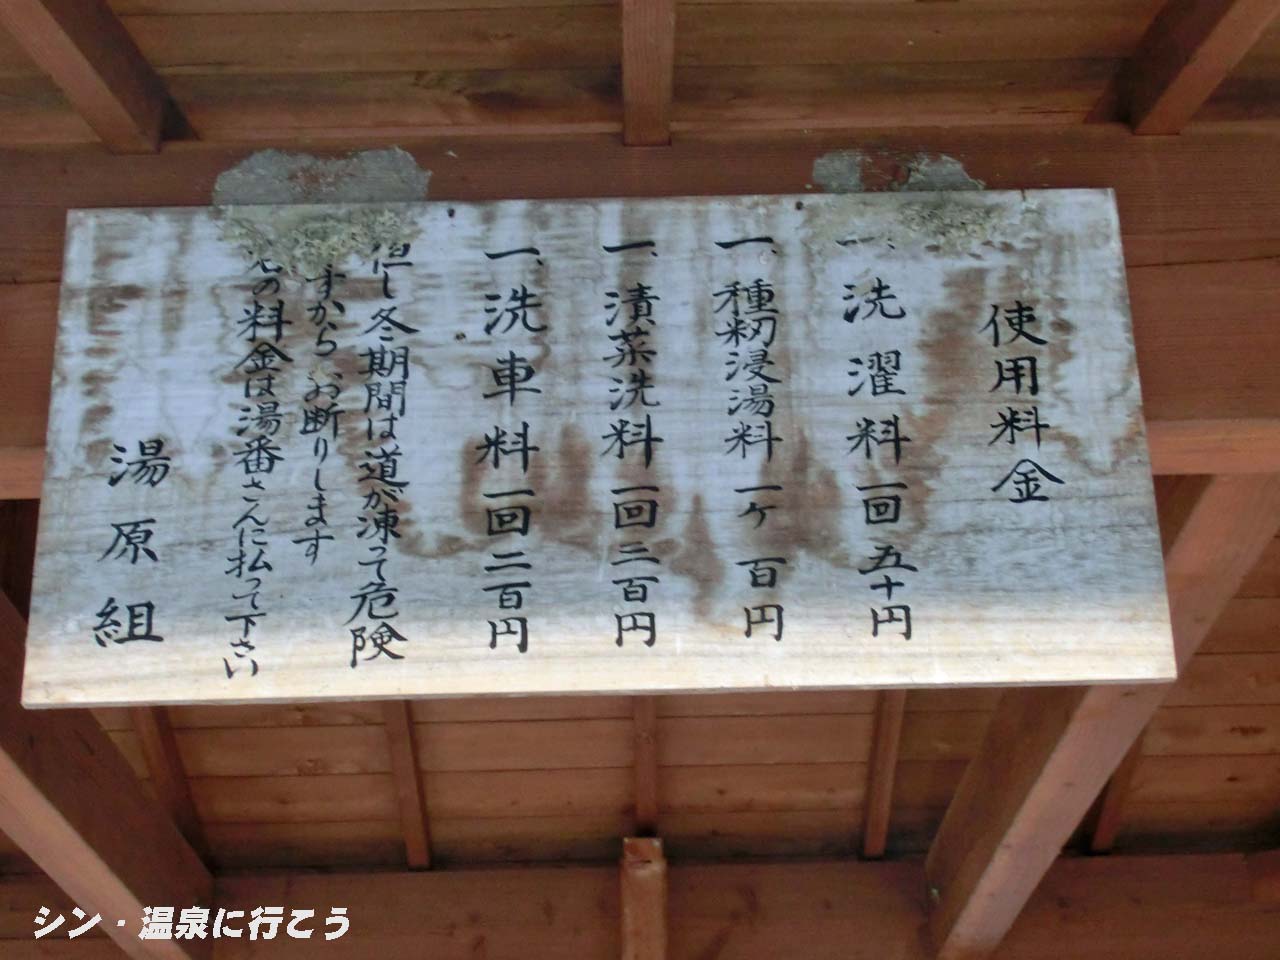 使用料金
一、洗濯料 一回 五十円
一、種籾浸湯料 一ヶ 百円
一、漬菜洗料 一回 二百円
一、洗車料 一回 二百円
但し冬期間は道が凍って危険
すから、お断りします
の料金は湯番さんに払って下さい
湯原組
シン・温泉に行こう